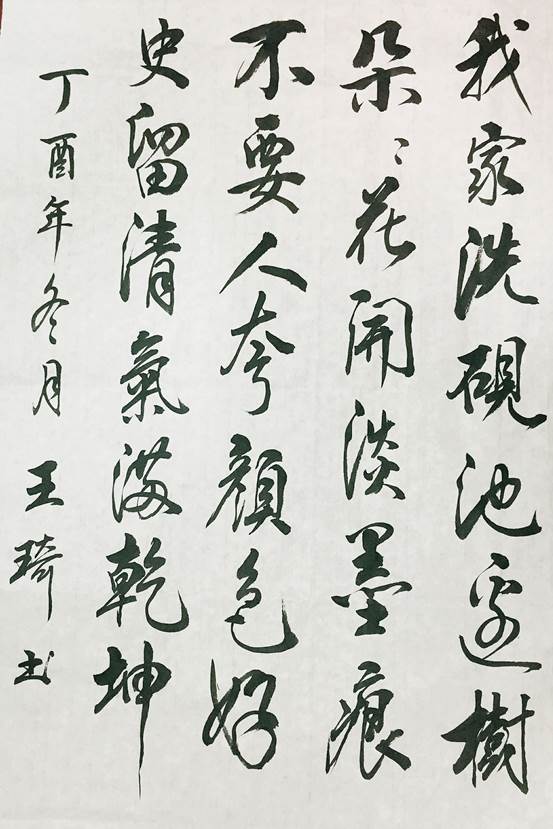 我家洗硯池邊樹
朵〻花開淡墨痕
不要人夸顏色好
史留清氣滿乾坤
丁酉年冬月 王琦书